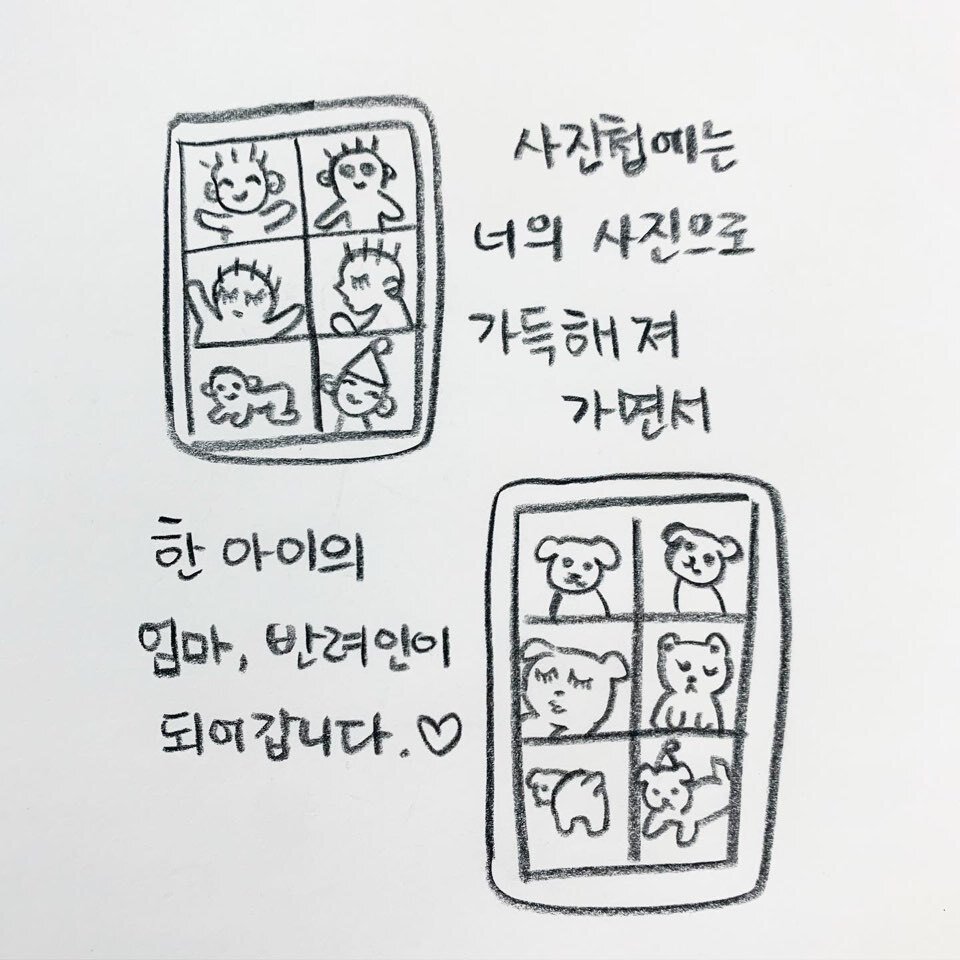 사진첩에는
너의 사진으로
가득해져
가면서
한 아이의
엄마, 반려인이
되어갑니다.♡